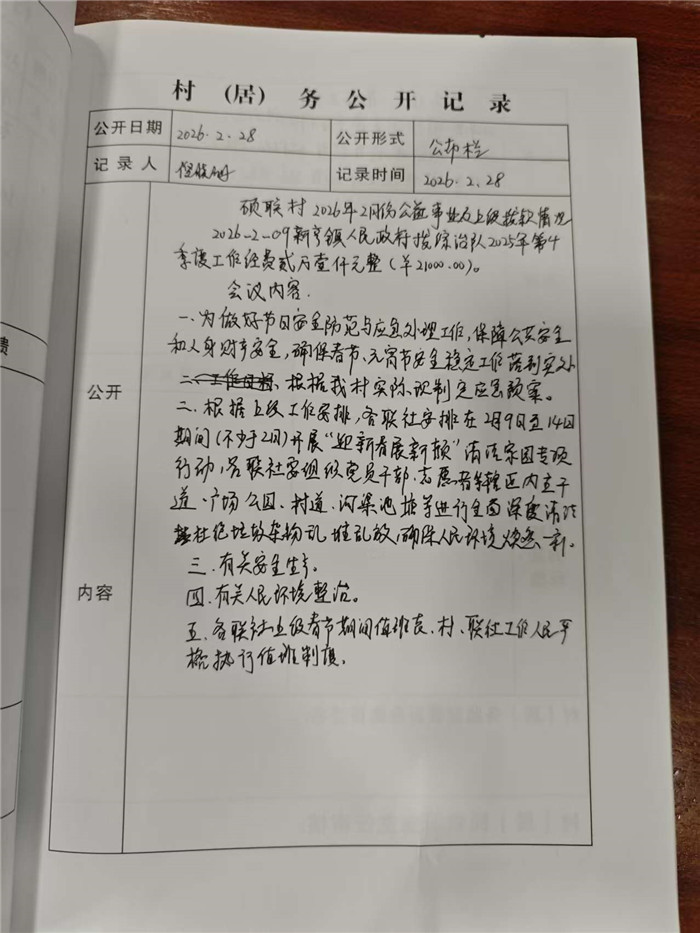 村（居）务公开记录
公开日期 2026.2.28 公开形式 公布栏
记录人 记录时间 2026.2.28
公开
内容
硕联村2026年2月份公益事业及上级拨款情况
2026-2-09新亨镇人民政府拨综治队2025年第4
季度工作经费贰万壹仟元整（￥21000.00）。
会议内容.
一、为做好节日安全防范与应急处理工作，保障公共安全
和人身财产安全，确保春节、元宵节安全稳定工作落到实处
根据我村实际，制定应急预案。
二、根据上级工作安排，各联社安排在2月9日至14日
期间（不少于2次）开展“迎新春展新颜”清洁家园专项
行动，各联社要组织党员干部、志愿者等辖区内主干
道、广场公园、村道、河渠池塘等进行全面深度清洁
杜绝垃圾杂物乱堆乱放，确保人民环境焕然一新。
三、有关安全生产。
四、有关人民环境整治。
五、各联社上级春节期间值班表、村、联社工作人员严
格执行值班制度。